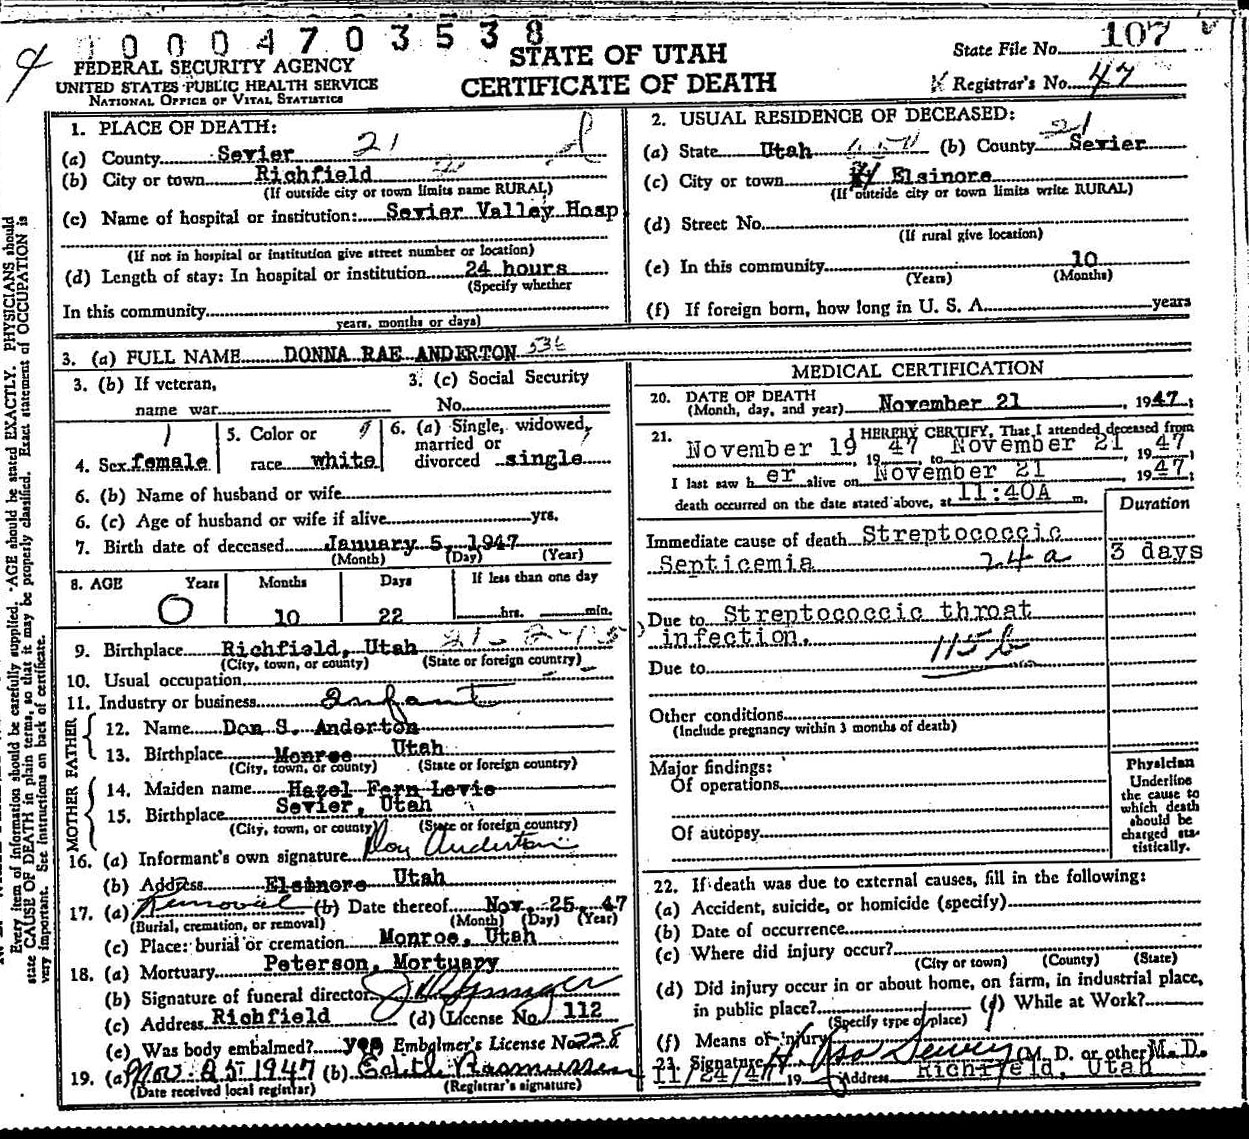 10004703538
FEDERAL SECURITY AGENCY
UNITED STATES PUBLIC HEALTH SERVICE
NATIONAL OFFICE OF VITAL STATISTICS
STATE OF UTAH
CERTIFICATE OF DEATH
State File No. 107
Registrar's No. 47
1. PLACE OF DEATH:
(a) County Sevier 21
(b) City or town Richfield
(If outside city or town limits name RURAL)
(c) Name of hospital or institution: Sevier Valley Hosp
(If not in hospital or institution give street number or location)
(d) Length of stay: In hospital or institution 24 hours
(Specify whether
In this community
years, months or days)
2. USUAL RESIDENCE OF DECEASED:
(a) State Utah (b) County Sevier 21
(c) City or town Elsinore
(If outside city or town limits write RURAL)
(d) Street No.
(If rural give location)
(e) In this community 10
(Years) (Months)
(f) If foreign born, how long in U. S. A. years
3. (a) FULL NAME DONNA RAE ANDERTON 536
3. (b) If veteran,
name war
3. (c) Social Security
No.
4. Sex female
5. Color or
race white
6. (a) Single, widowed,
married or
divorced single
6. (b) Name of husband or wife
6. (c) Age of husband or wife if alive yrs.
7. Birth date of deceased January 5, 1947
(Month) (Day) (Year)
8. AGE Years Months Days If less than one day
0 10 22 hrs. min.
9. Birthplace Richfield, Utah
(City, town, or county) (State or foreign country)
10. Usual occupation
11. Industry or business Infant
FATHER
12. Name Don S. Anderton
13. Birthplace Monroe Utah
(City, town, or county) (State or foreign country)
MOTHER
14. Maiden name Hazel Fern Levie
15. Birthplace Sevier, Utah
(City, town, or county) (State or foreign country)
16. (a) Informant's own signature Don Anderton
(b) Address Elsinore Utah
17. (a) Removal (b) Date thereof Nov. 25, 47
(Burial, cremation, or removal) (Month) (Day) (Year)
(c) Place: burial or cremation Monroe, Utah
18. (a) Mortuary Peterson, Mortuary
(b) Signature of funeral director
(c) Address Richfield (d) License No. 112
(e) Was body embalmed? yes Embalmer's License No. 228
19. (a) Nov. 25 1947 (b) Edith Rasmussen
(Date received local registrar) (Registrar's signature)
MEDICAL CERTIFICATION
20. DATE OF DEATH
(Month, day, and year) November 21, 1947;
21. I HEREBY CERTIFY, That I attended deceased from
November 19, 1947 to November 21, 1947
I last saw her alive on November 21 1947;
death occurred on the date stated above, at 11:40A m.
Duration
Immediate cause of death Streptococcic
Septicemia 24a 3 days
Due to Streptococcic throat
infection. 115b
Due to
Other conditions
(Include pregnancy within 3 months of death)
Major findings:
Of operations
Of autopsy
Physician
Underline
the cause to
which death
should be
charged sta-
tistically.
22. If death was due to external causes, fill in the following:
(a) Accident, suicide, or homicide (specify)
(b) Date of occurrence
(c) Where did injury occur?
(City or town) (County) (State)
(d) Did injury occur in or about home, on farm, in industrial place,
in public place? (f) While at Work?
(Specify type of place)
(f) Means of injury
23. Signature H. Asa Dewey (M. D. or other) M.D.
11/24/47 19 Address Richfield, Utah
Every item of information should be carefully supplied. AGE should be stated EXACTLY. PHYSICIANS should
state CAUSE OF DEATH in plain terms, so that it may be properly classified. Exact statement of OCCUPATION is
very important. See instructions on back of certificate.